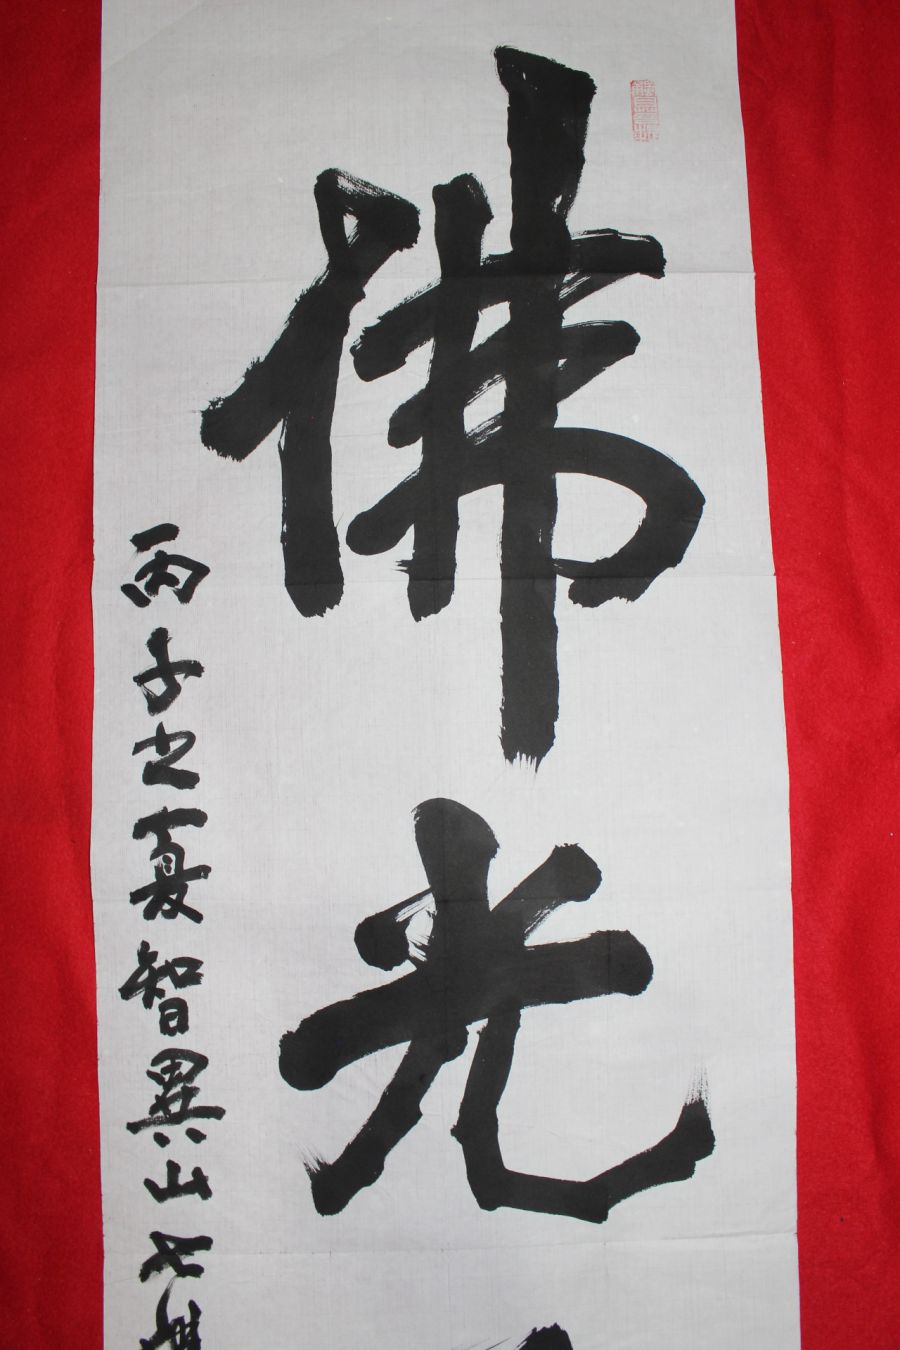 佛光
丙子之夏智異山七